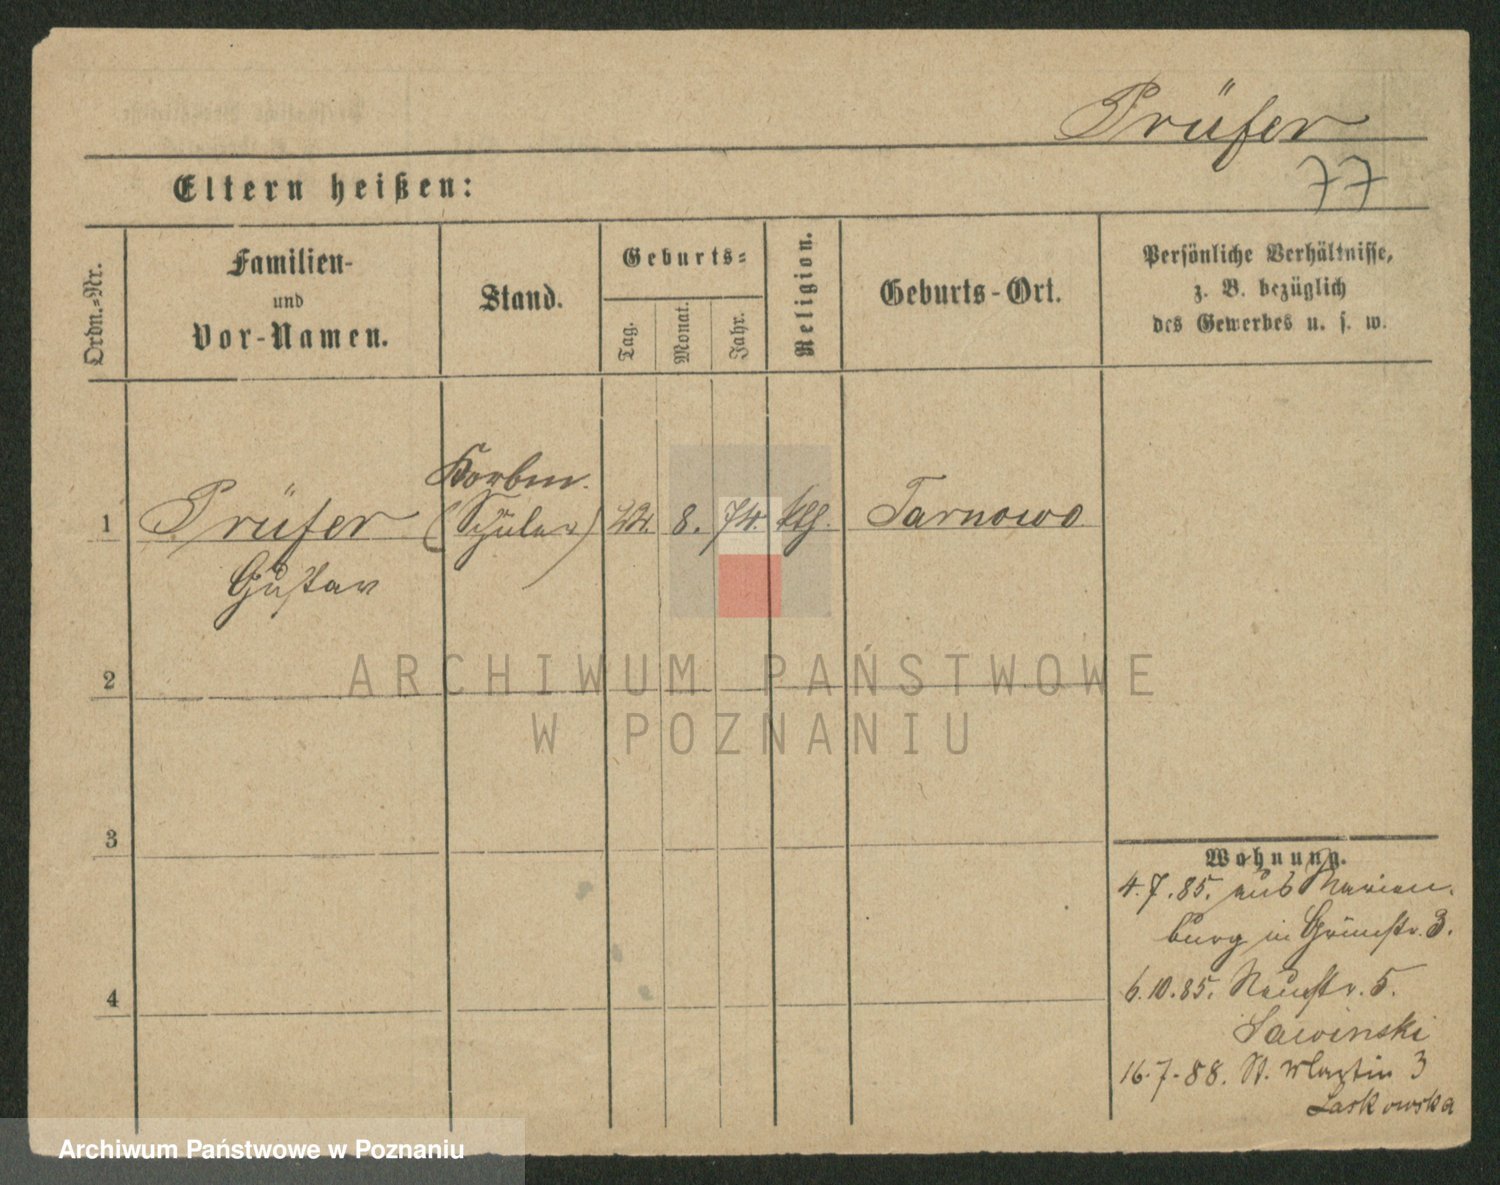 Prüfer
77
Eltern heißen:
Ordn.-Nr.
Familien-
und
Vor-Namen.
Stand.
Geburts-
Tag.
Monat.
Jahr.
Religion.
Geburts-Ort.
Persönliche Verhältnisse,
z. B. bezüglich
des Gewerbes u. s. w.
1
Prüfer
Gustav
(Schüler)
22. 8. 74.
kth.
Tarnowo
2
3
4
Wohnung.
4.7.85. aus Marien-
burg in Grünstr. 3.
6.10.85. Neuestr. 5.
Sawinski
16.7.88. St. Martin 3
Laskowska
ARCHIWUM PAŃSTWOWE
W POZNANIU
Archiwum Państwowe w Poznaniu